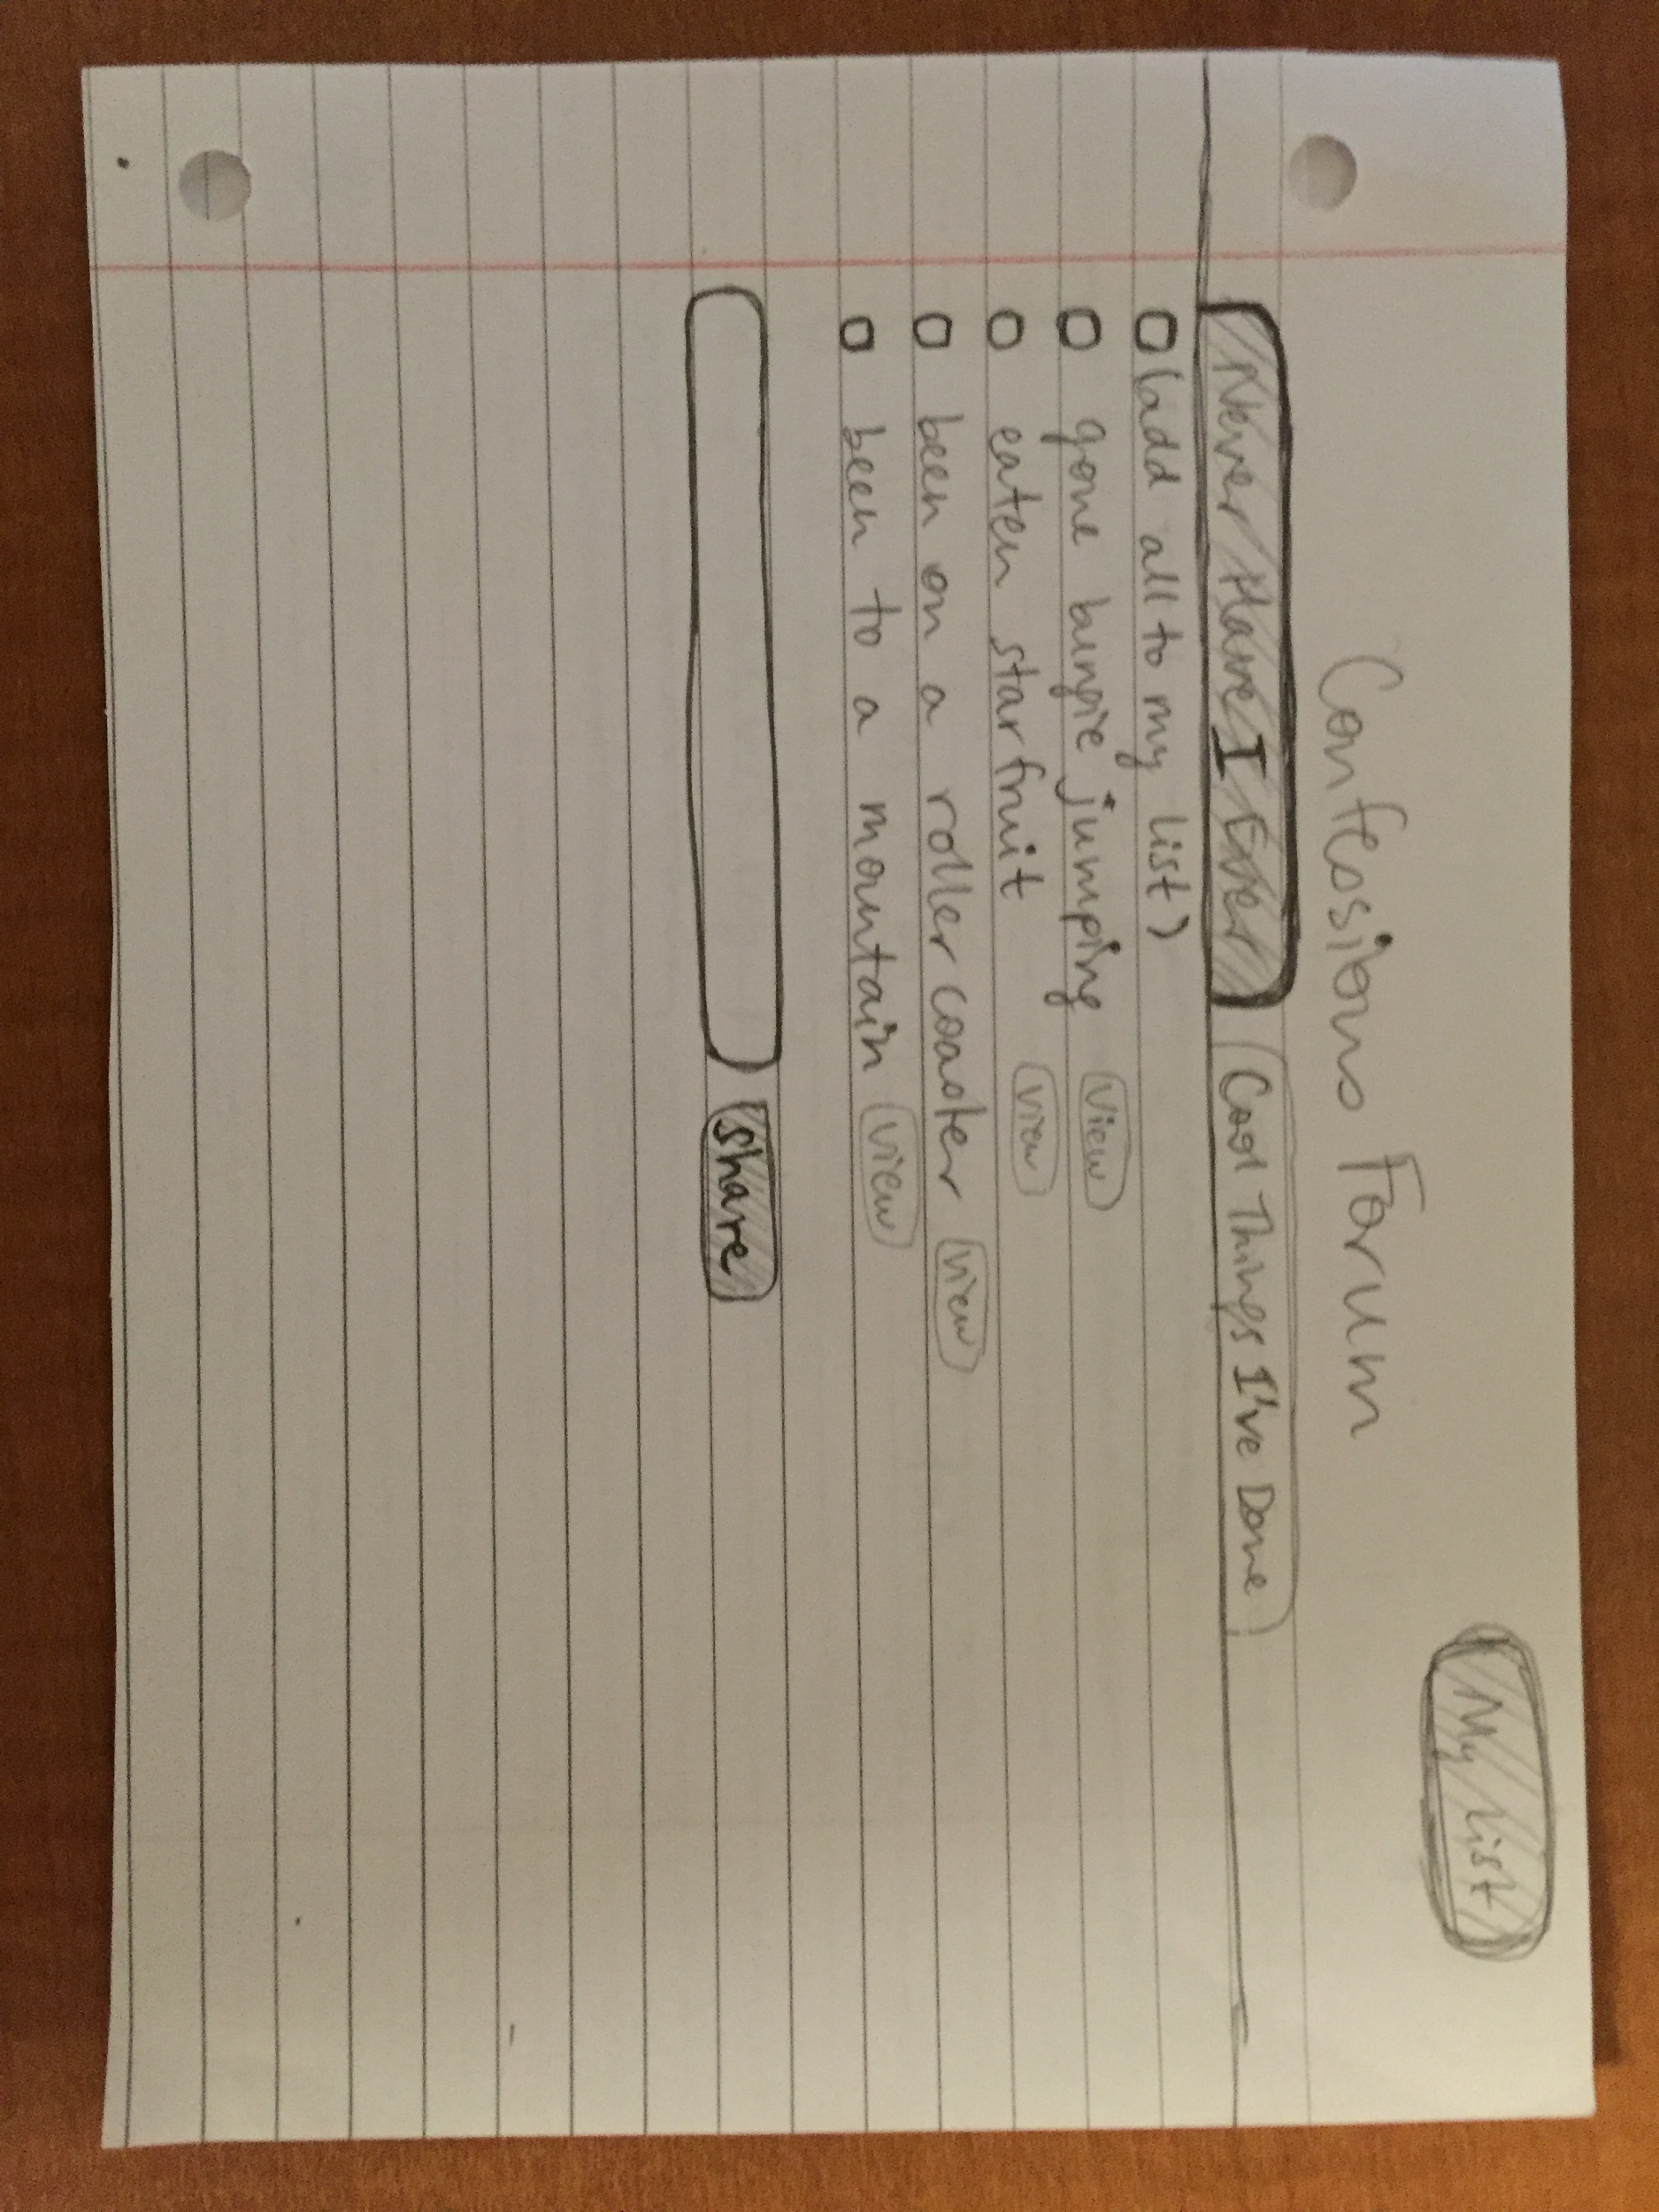 My List
Confessions Forum
Never Have I Ever Cool Things I've Done
(add all to my list)
gone bungie jumping view
eaten starfruit view
been on a roller coaster view
been to a mountain view
share